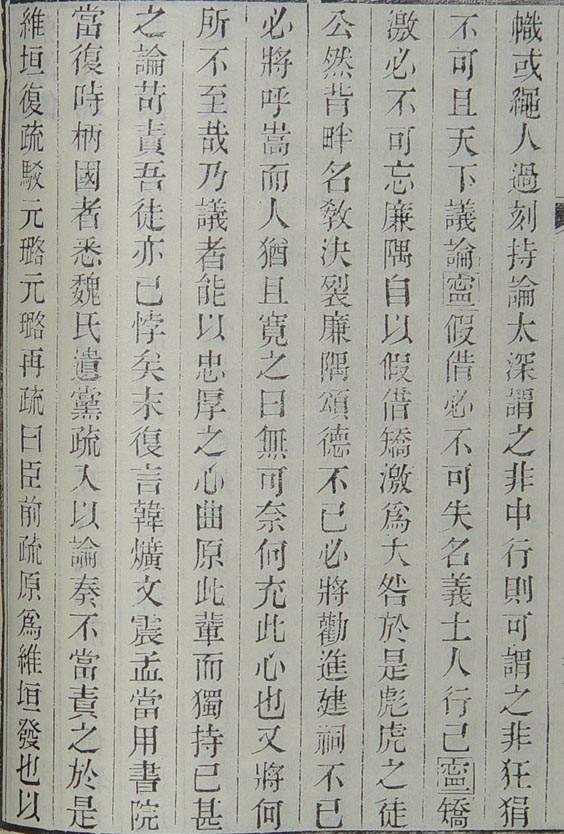 幟或繩人過刻持論太深謂之非中行則可謂之非狂狷
不可且天下議論寍假借必不可失名義士人行己寍矯
激必不可忘廉隅自以假借矯激爲大咎於是彪虎之徒
公然背畔名敎決裂廉隅頌德不已必將勸進建祠不已
必將呼嵩而人猶且寬之曰無可奈何充此心也又將何
所不至哉乃議者能以忠厚之心曲原此輩而獨持已甚
之論苛責吾徒亦已悖矣末復言韓爌文震孟當用書院
當復時柄國者悉魏氏遺黨疏入以論奏不當責之於是
維垣復疏駁元璐元璐再疏曰臣前疏原爲維垣發也以